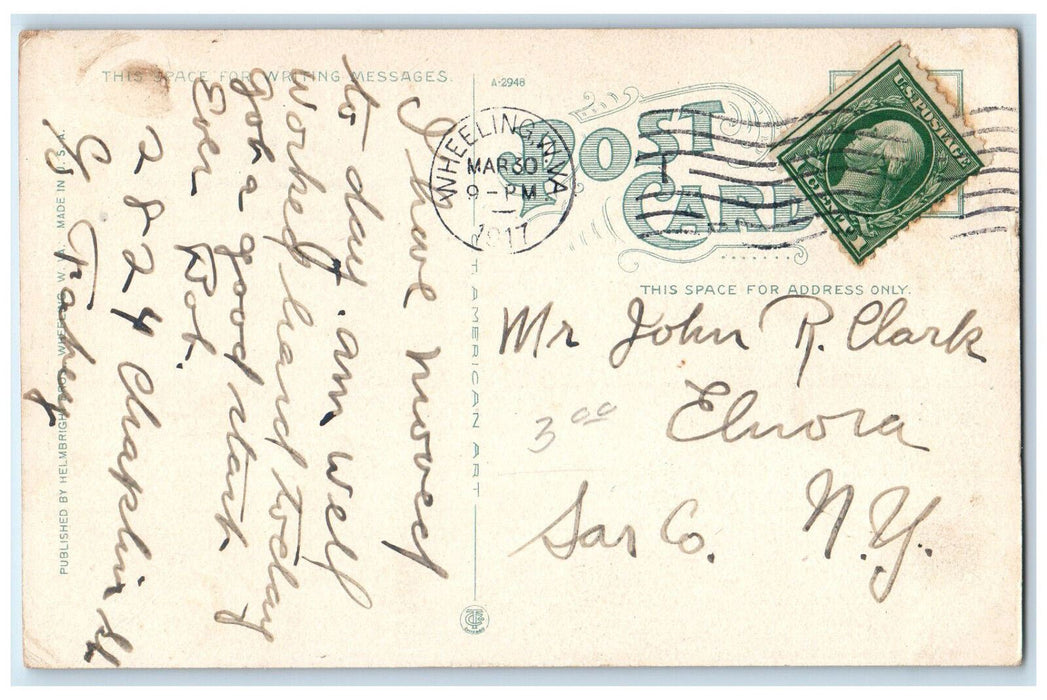 THIS SPACE FOR WRITING MESSAGES.
A-2948
POST CARD
WHEELING, W.VA.
MAR 30
9-PM
1917
U.S. POSTAGE
1 CENT 1
THIS SPACE FOR ADDRESS ONLY.
Mr John R. Clark
Elnora
Sar Co. N.Y.
3 00
I have moved
to day. am well
worked hard today
got a good start
Ever Bob.
2824 Chaplin St
% Fahey
AMERICAN ART
PUBLISHED BY HELMBRIGHT BROS. WHEELING, W. VA. MADE IN U.S.A.